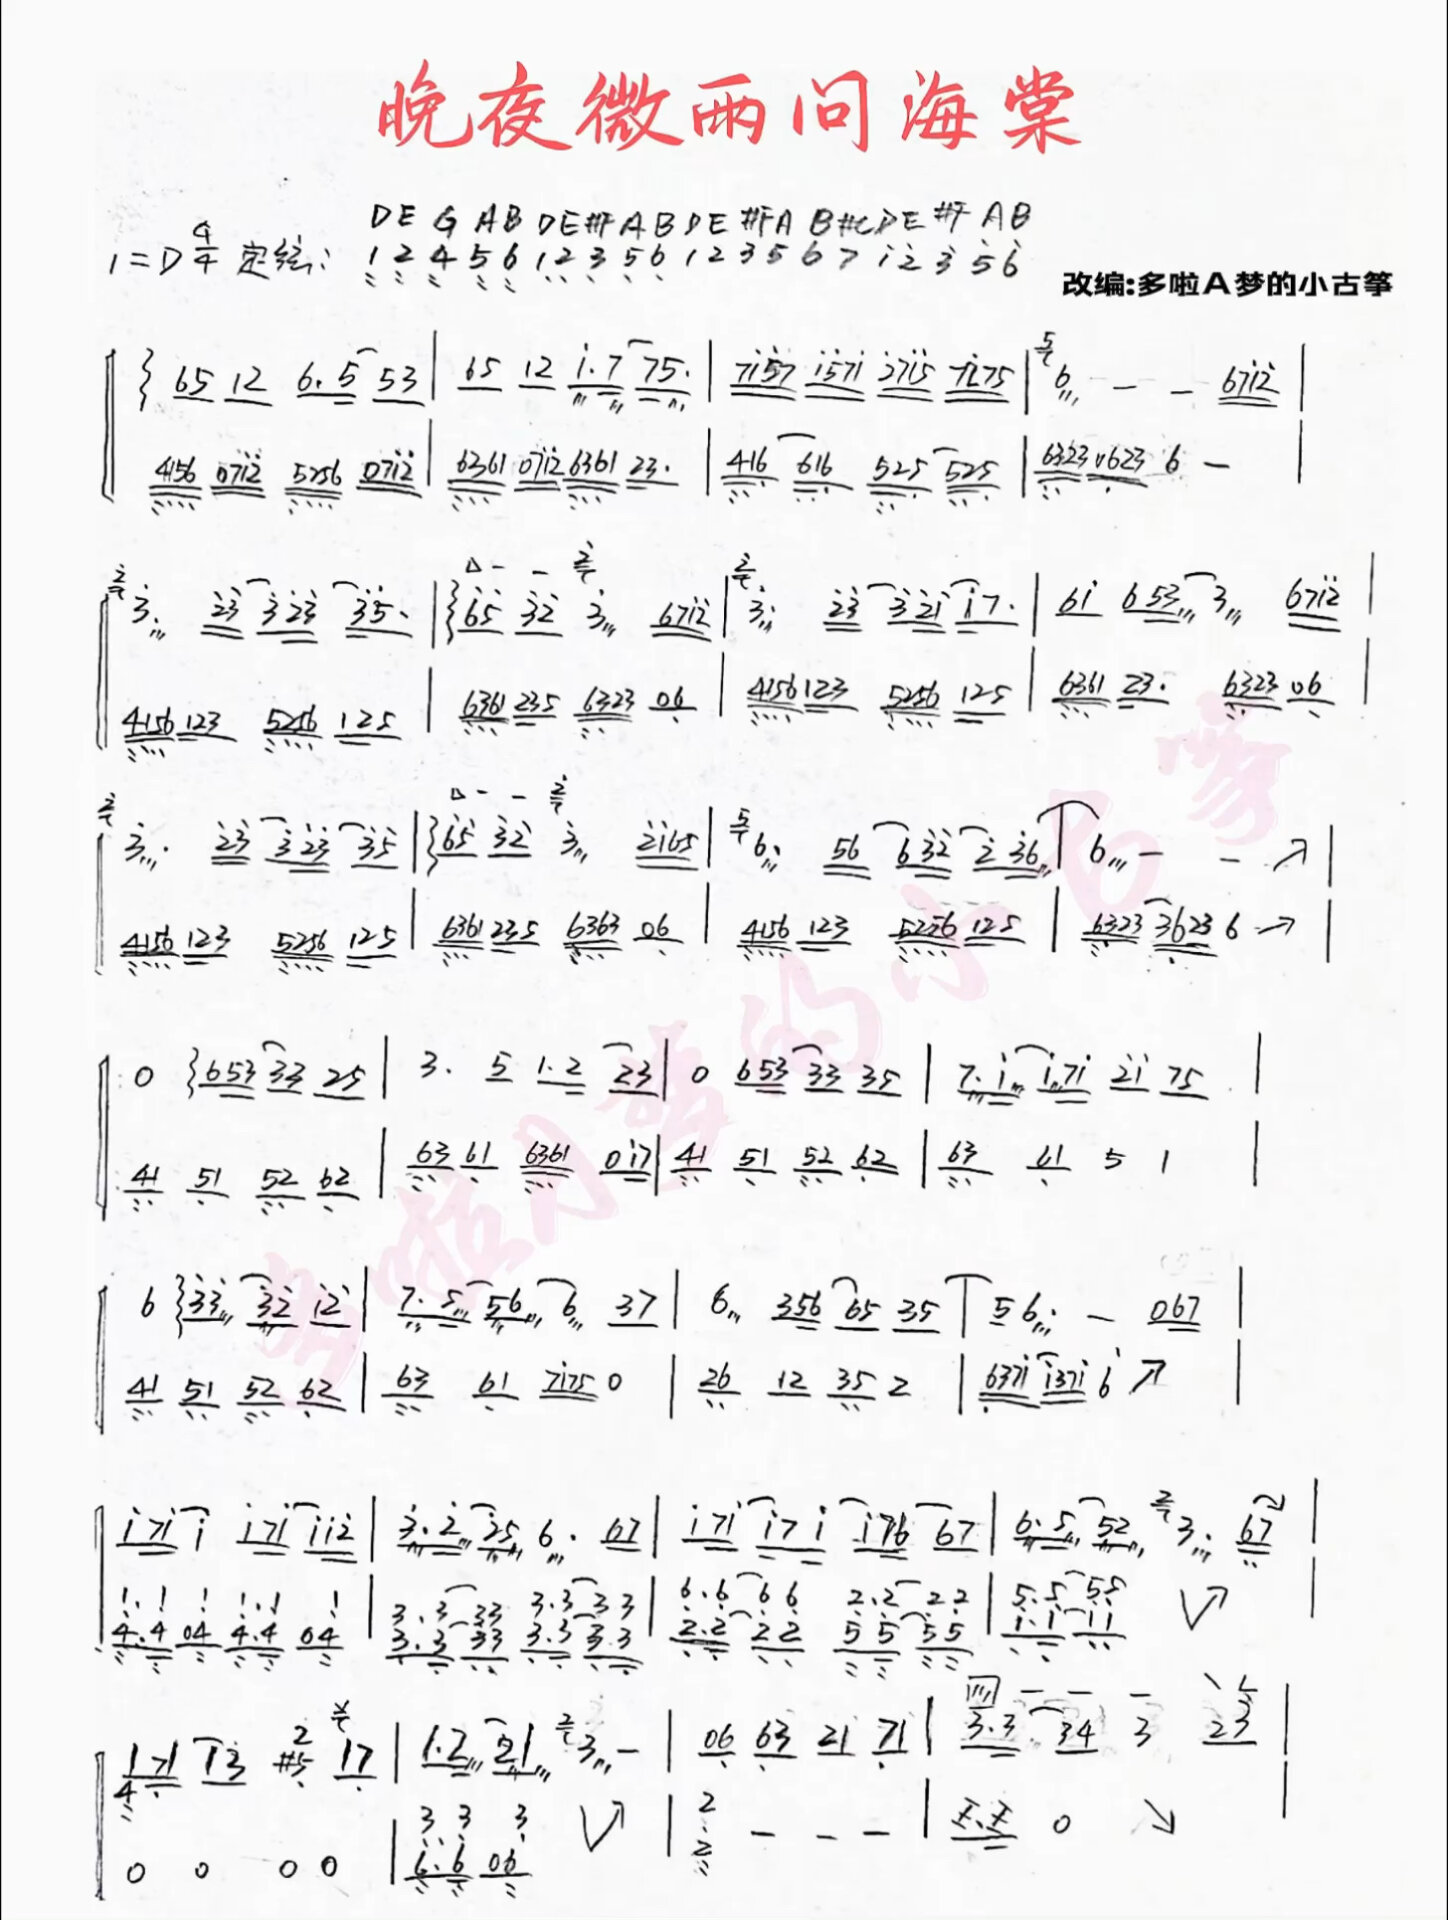 晚夜微雨问海棠
DE G AB DE#FAB DE #FA B#CDE #F AB
1=D 4/4 定弦: 1 2 4 5 6 1 2 3 5 6 1 2 3 5 6 7 i 2 3 5 6
改编:多啦A梦的小古筝
65 12 6.5 53 | 65 12 i.7 75. | 7i57 i57i 27i5 7i75 | 6 - - 67i2 |
4156 07i2 5256 07i2 | 6361 0712 6361 23. | 416 616 525 525 | 6323 0623 6 - |
3 23 323 35. | 65 32 3 67i2 | 3 23 32i i7. | 6i 653 3 67i2 |
4156 123 5256 125 | 6361 235 6323 06 | 4156 123 5256 125 | 6361 23. 6323 06 |
3. 23 323 35 | 65 32 3 2i65 | 6. 56 632 2 36 | 6 - - ↗ |
4156 123 5256 125 | 6361 235 6363 06 | 4156 123 5256 125 | 6323 3623 6 → |
0 653 33 25 | 3. 5 1.2 23 | 0 653 33 35 | 7.i i7i 2i 75 |
41 51 52 62 | 63 61 6361 0i7 | 41 51 52 62 | 63 61 5 1 |
6 33 32 i2 | 7.5 56 6 37 | 6 356 65 35 | 56. - 067 |
41 51 52 62 | 63 61 7i75 0 | 26 12 35 2 | 637i i37i 6 ↗ |
i7i i i7i ii2 | 3.2 25 6. 67 | i7i i7i i76 67 | 6.5 52 3. 67 |
1.1 1 1.1 1 | 3.3 33 3.3 33 | 6.6 66 2.2 22 | 5.5 55
4.4 04 4.4 04 | 3.3 33 3.3 33 | 2.2 22 55 55 | 1.1 11
171 13 #5 17 | 1.2 21 3 - | 06 63 21 71 | 3.3 34 3 23 |
3 3 3
0 0 0 0 | 6.6 06 | 2 - - - | X.X 0 ↘
多啦A梦的小古筝